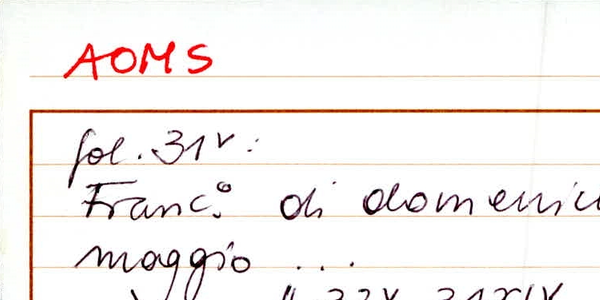 AOMS
fol. 31v:
Franc.º di domenic
maggio ...